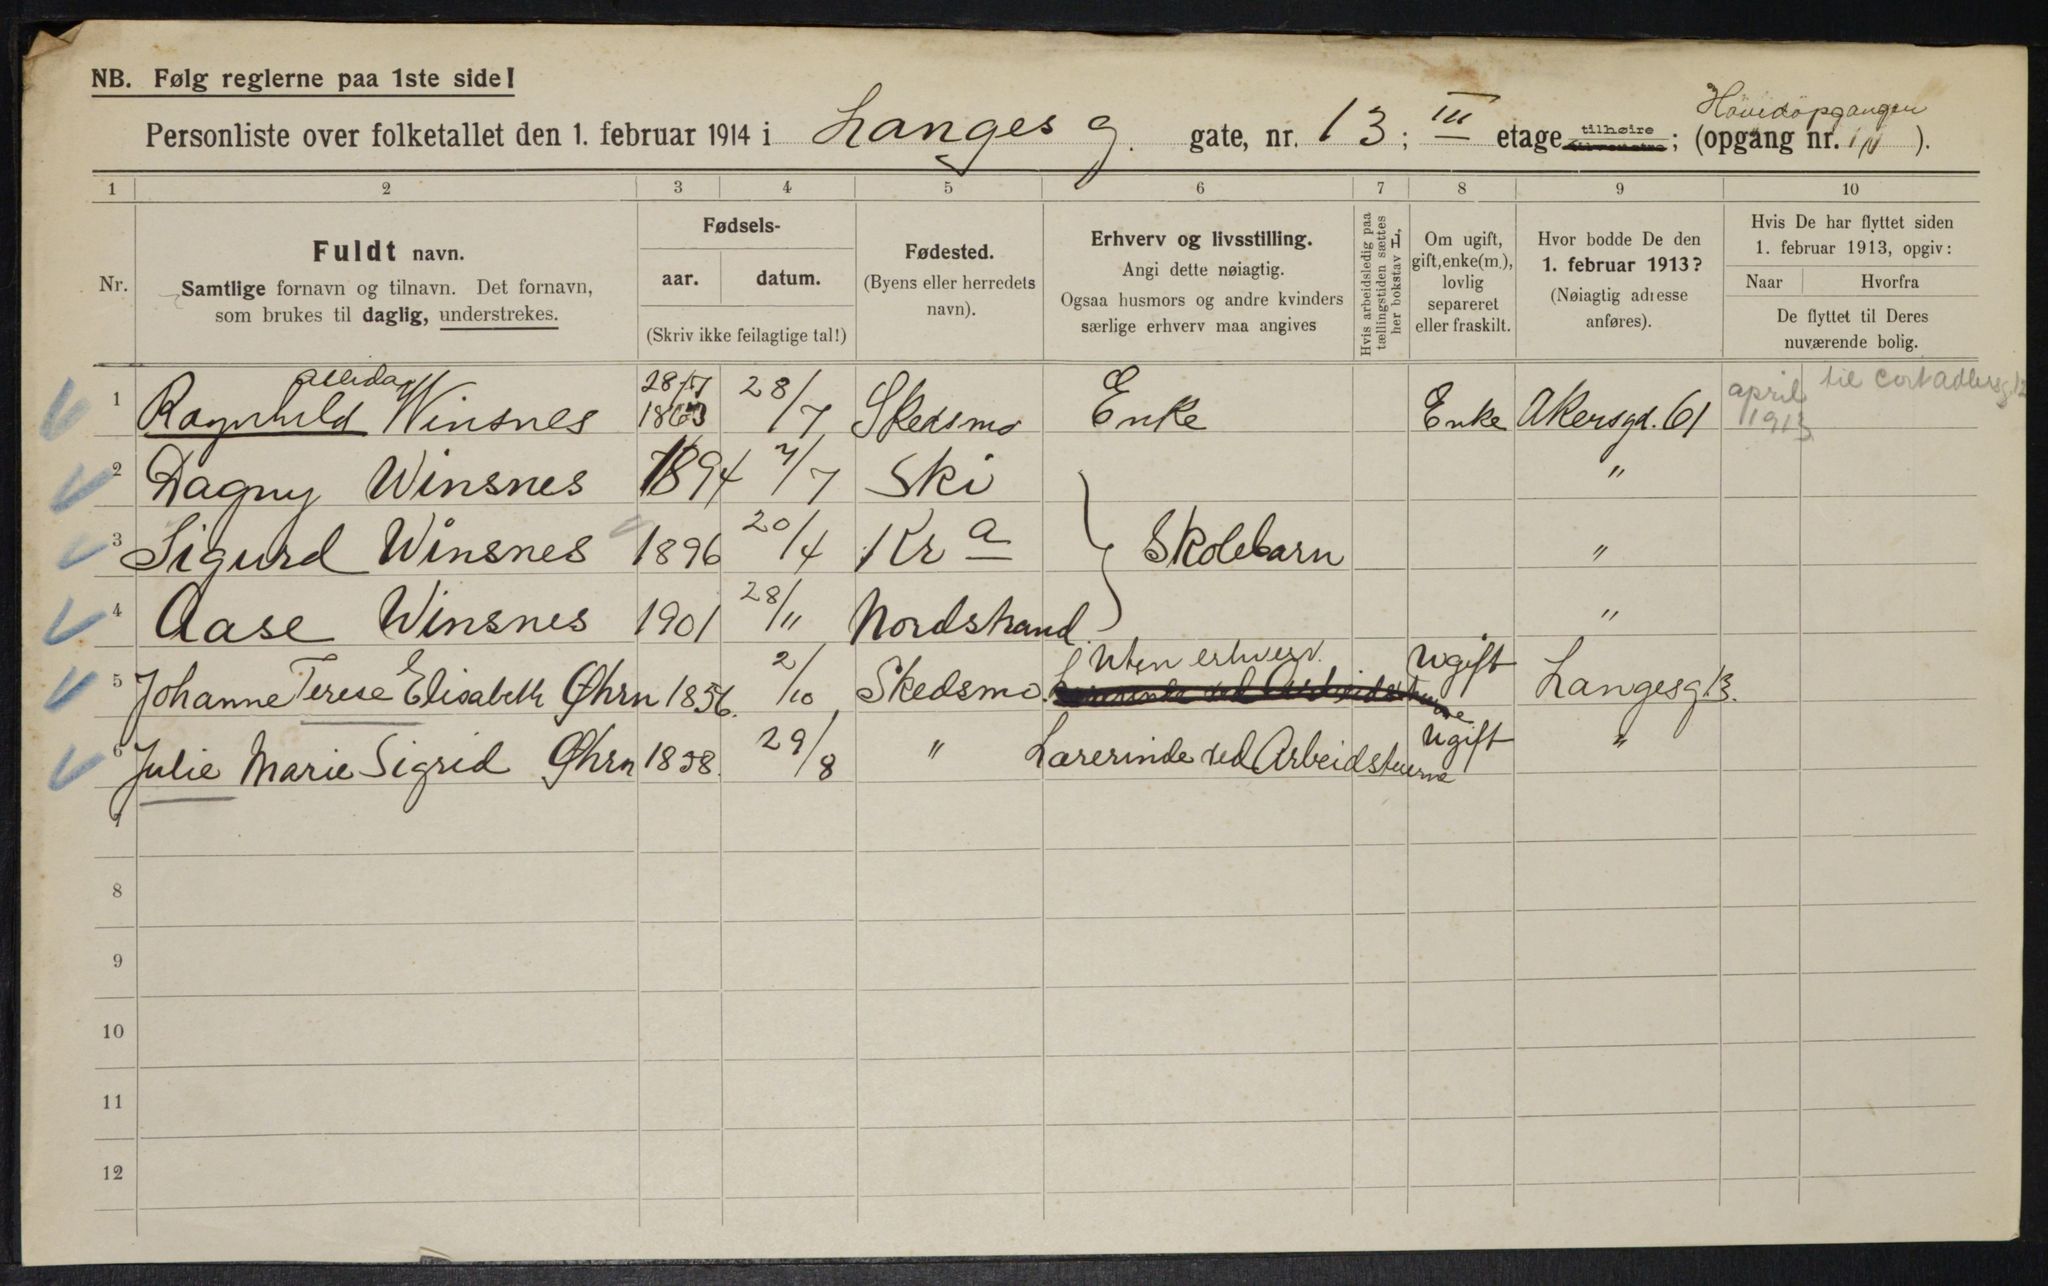 NB. Følg reglerne paa 1ste side!
Personliste over folketallet den 1. februar 1914 i Langes g. gate, nr. 13; III etage tilhøire; (opgang nr. ).
Hovedopgangen
1 2 3 4 5 6 7 8 9 10
Nr.
Fuldt navn.
Samtlige fornavn og tilnavn. Det fornavn,
som brukes til daglig, understrekes.
Fødsels-
aar. datum.
(Skriv ikke feilagtige tal!)
Fødested.
(Byens eller herredets
navn).
Erhverv og livsstilling.
Angi dette nøiagtig.
Ogsaa husmors og andre kvinders
særlige erhverv maa angives
Hvis arbeidsledig paa
tællingstiden sættes
her bokstav L.
Om ugift,
gift, enke(m.),
lovlig
separeret
eller fraskilt.
Hvor bodde De den
1. februar 1913?
(Nøiagtig adresse
anføres).
Hvis De har flyttet siden
1. februar 1913, opgiv:
Naar Hvorfra
De flyttet til Deres
nuværende bolig.
1 Ragnhild Winsnes 28/7 1863 28/7 Skedsmo Enke Enke Akersgd. 61 april 1913 til Cort Adlersg 12
2 Dagny Winsnes 1894 7/7 Ski "
3 Sigurd Winsnes 1896 20/4 Kra } Skolebarn "
4 Aase Winsnes 1901 28/11 Nordstrand "
5 Johanne Terese Elisabeth Øhrn 1856. 2/10 Skedsmo. Uten erhverv. Ugift Langesg 13.
6 Julie Marie Sigrid Øhrn 1858. 29/8 " Lærerinde ved Arbeidstuerne Ugift "
7
8
9
10
11
12